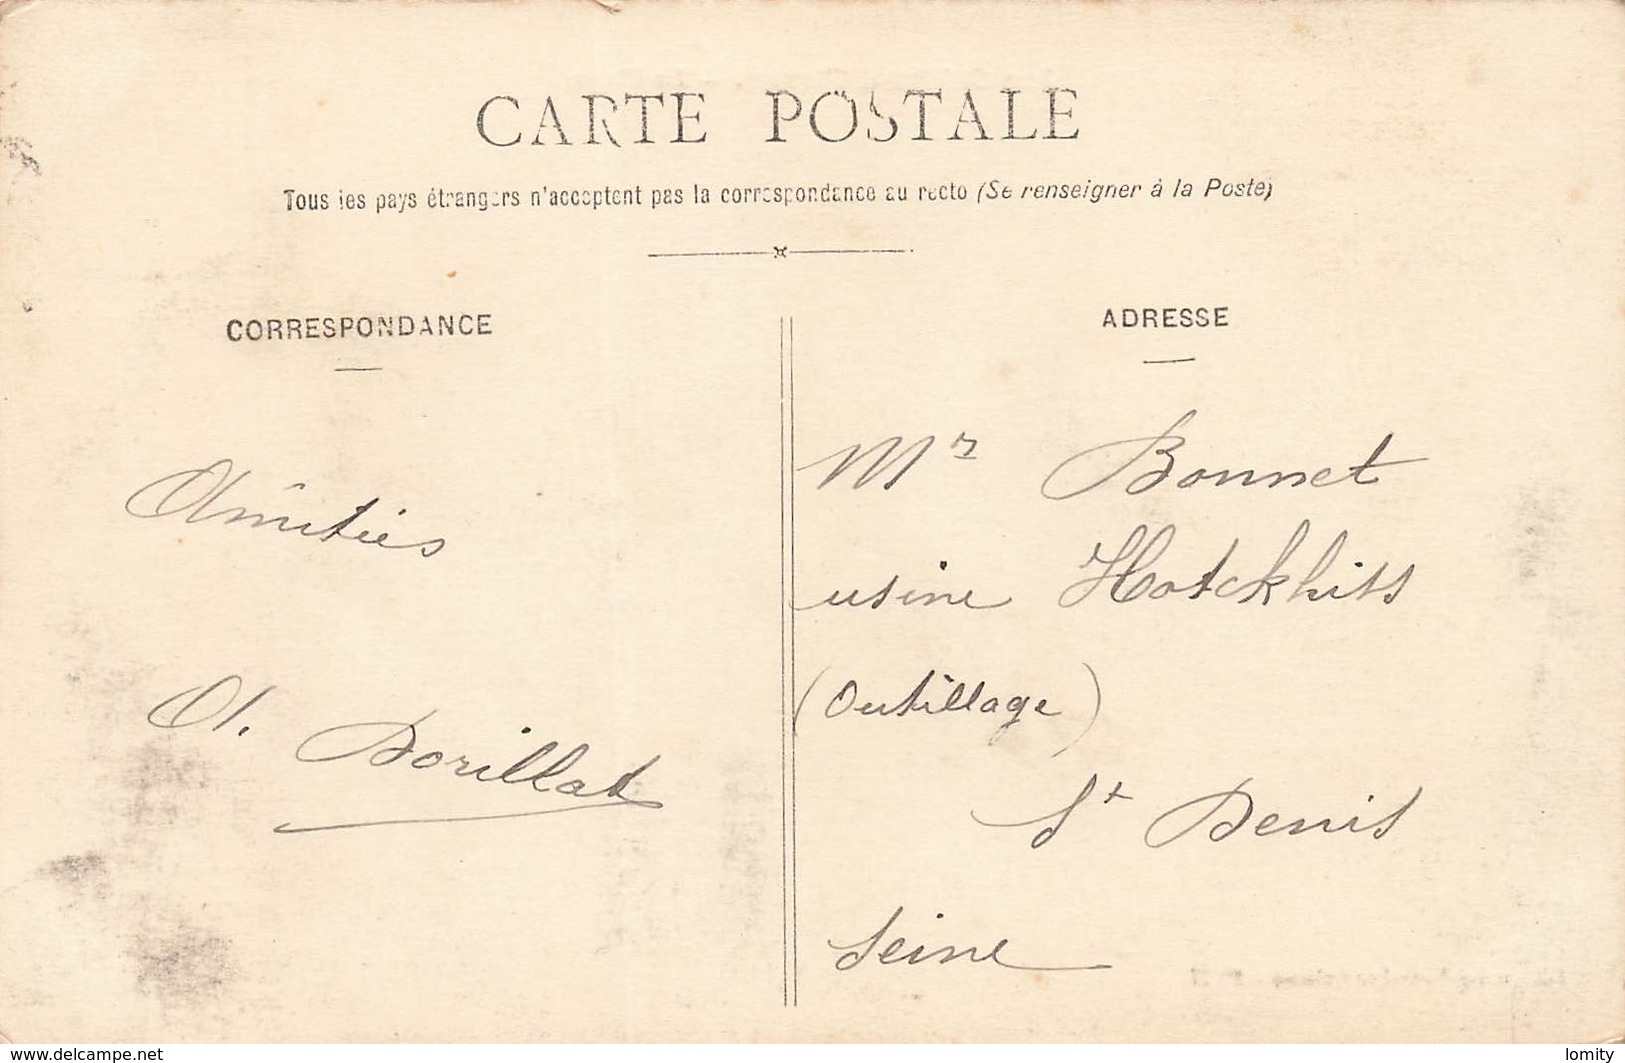 CARTE POSTALE
Tous les pays étrangers n'acceptent pas la correspondance au recto (Se renseigner à la Poste)
CORRESPONDANCE
Amitiés
A. Dorillat
ADRESSE
Mr Bonnet
usine Hotckhiss
(Outillage)
St Denis
Seine
www.delcampe.net
lomity